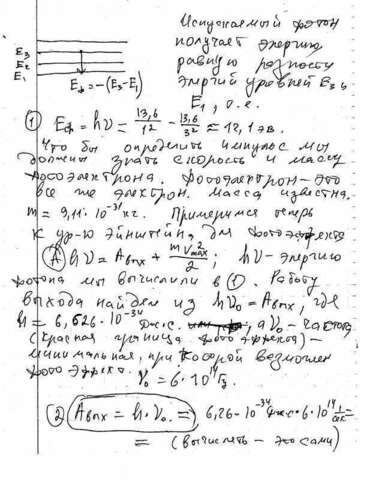 Испускаемый фотон
получает энергию
равную разности
энергий уровней E₃ и
E₁, т.е.
E₃
E₂
E₁
Eф = -(E₃-E₁)
① Eф = hν = 13,6/1² - 13,6/3² ≈ 12,1 эв.
Что бы определить импульс мы
должны знать скорость и массу
фотоэлектрона. Фотоэлектрон - это
все же электрон. масса известна.
m = 9,11·10⁻³¹ кг. Применимся теперь
к ур-ю Эйнштейна для фотоэффекта
Ⓐ hν = Aвых + mV²max/2; hν - энергию
фотона мы вычислили в ①. Работу
выхода найдем из hν₀ = Aвых, где
h = 6,626·10⁻³⁴ дж·с. а ν₀ - частота
(красная граница фотоэффекта) -
минимальная, при которой возможен
фотоэффект.
ν₀ = 6·10¹⁴ Гц
② Aвых = h·ν₀ = 6,26-10⁻³⁴ дж·с·6·10¹⁴ 1/сек =
= (вычислять - это сами)